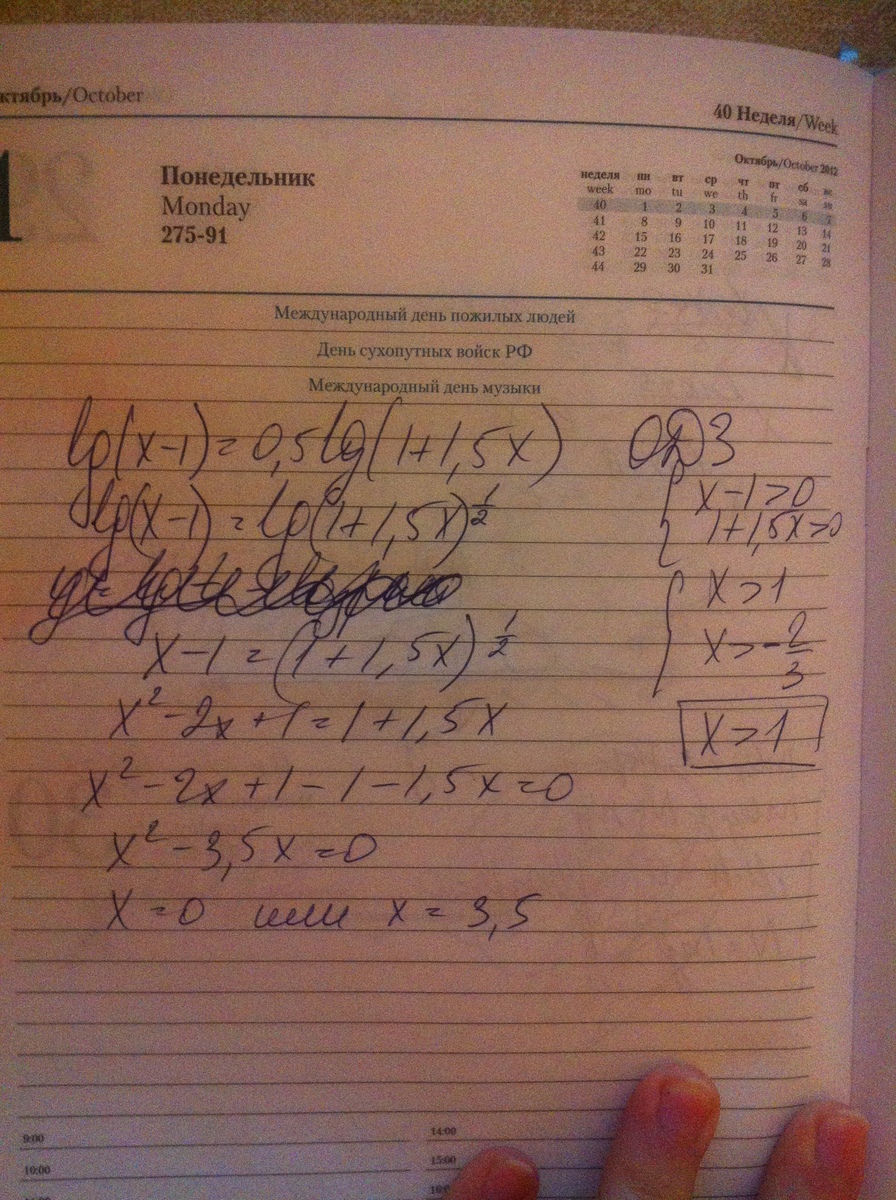 ктябрь/October
40 Неделя/Week
1
Понедельник
Monday
275-91
Октябрь/October 2012
неделя пн вт ср чт пт сб вс
week mo tu we th fr sa su
40 1 2 3 4 5 6 7
41 8 9 10 11 12 13 14
42 15 16 17 18 19 20 21
43 22 23 24 25 26 27 28
44 29 30 31
Международный день пожилых людей
День сухопутных войск РФ
Международный день музыки
lg(x-1)=0,5lg(1+1,5x) ОДЗ
lg(x-1)=lg(1+1,5x)^½ { x-1>0
1+1,5x>0
{ x>1
x-1=(1+1,5x)^½ x>-2/3
x²-2x+1=1+1,5x x>1
x²-2x+1-1-1,5x=0
x²-3,5x=0
x=0 или x=3,5
9:00 14:00
10:00 15:00